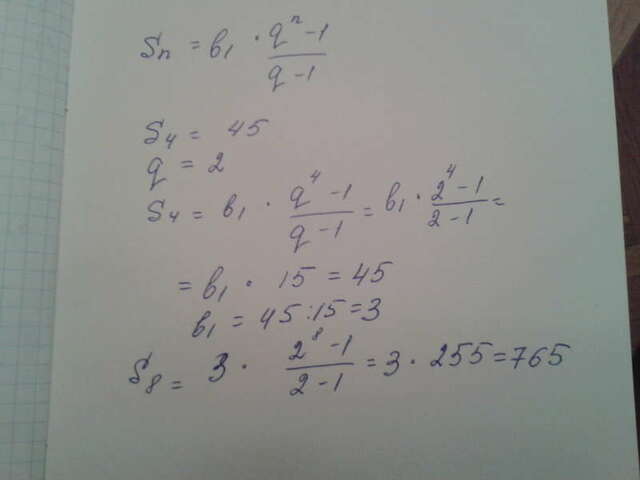 Sn = b₁ · (qⁿ - 1)/(q - 1)
S₄ = 45
q = 2
S₄ = b₁ · (q⁴ - 1)/(q - 1) = b₁ · (2⁴ - 1)/(2 - 1) =
= b₁ · 15 = 45
b₁ = 45 : 15 = 3
S₈ = 3 · (2⁸ - 1)/(2 - 1) = 3 · 255 = 765